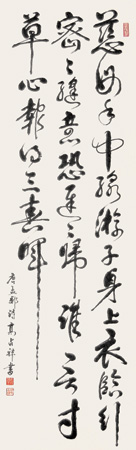 慈母手中線游子身上衣臨行
密〻縫意恐遲〻歸誰言寸
草心報得三春暉
唐孟郊詩高占祥書